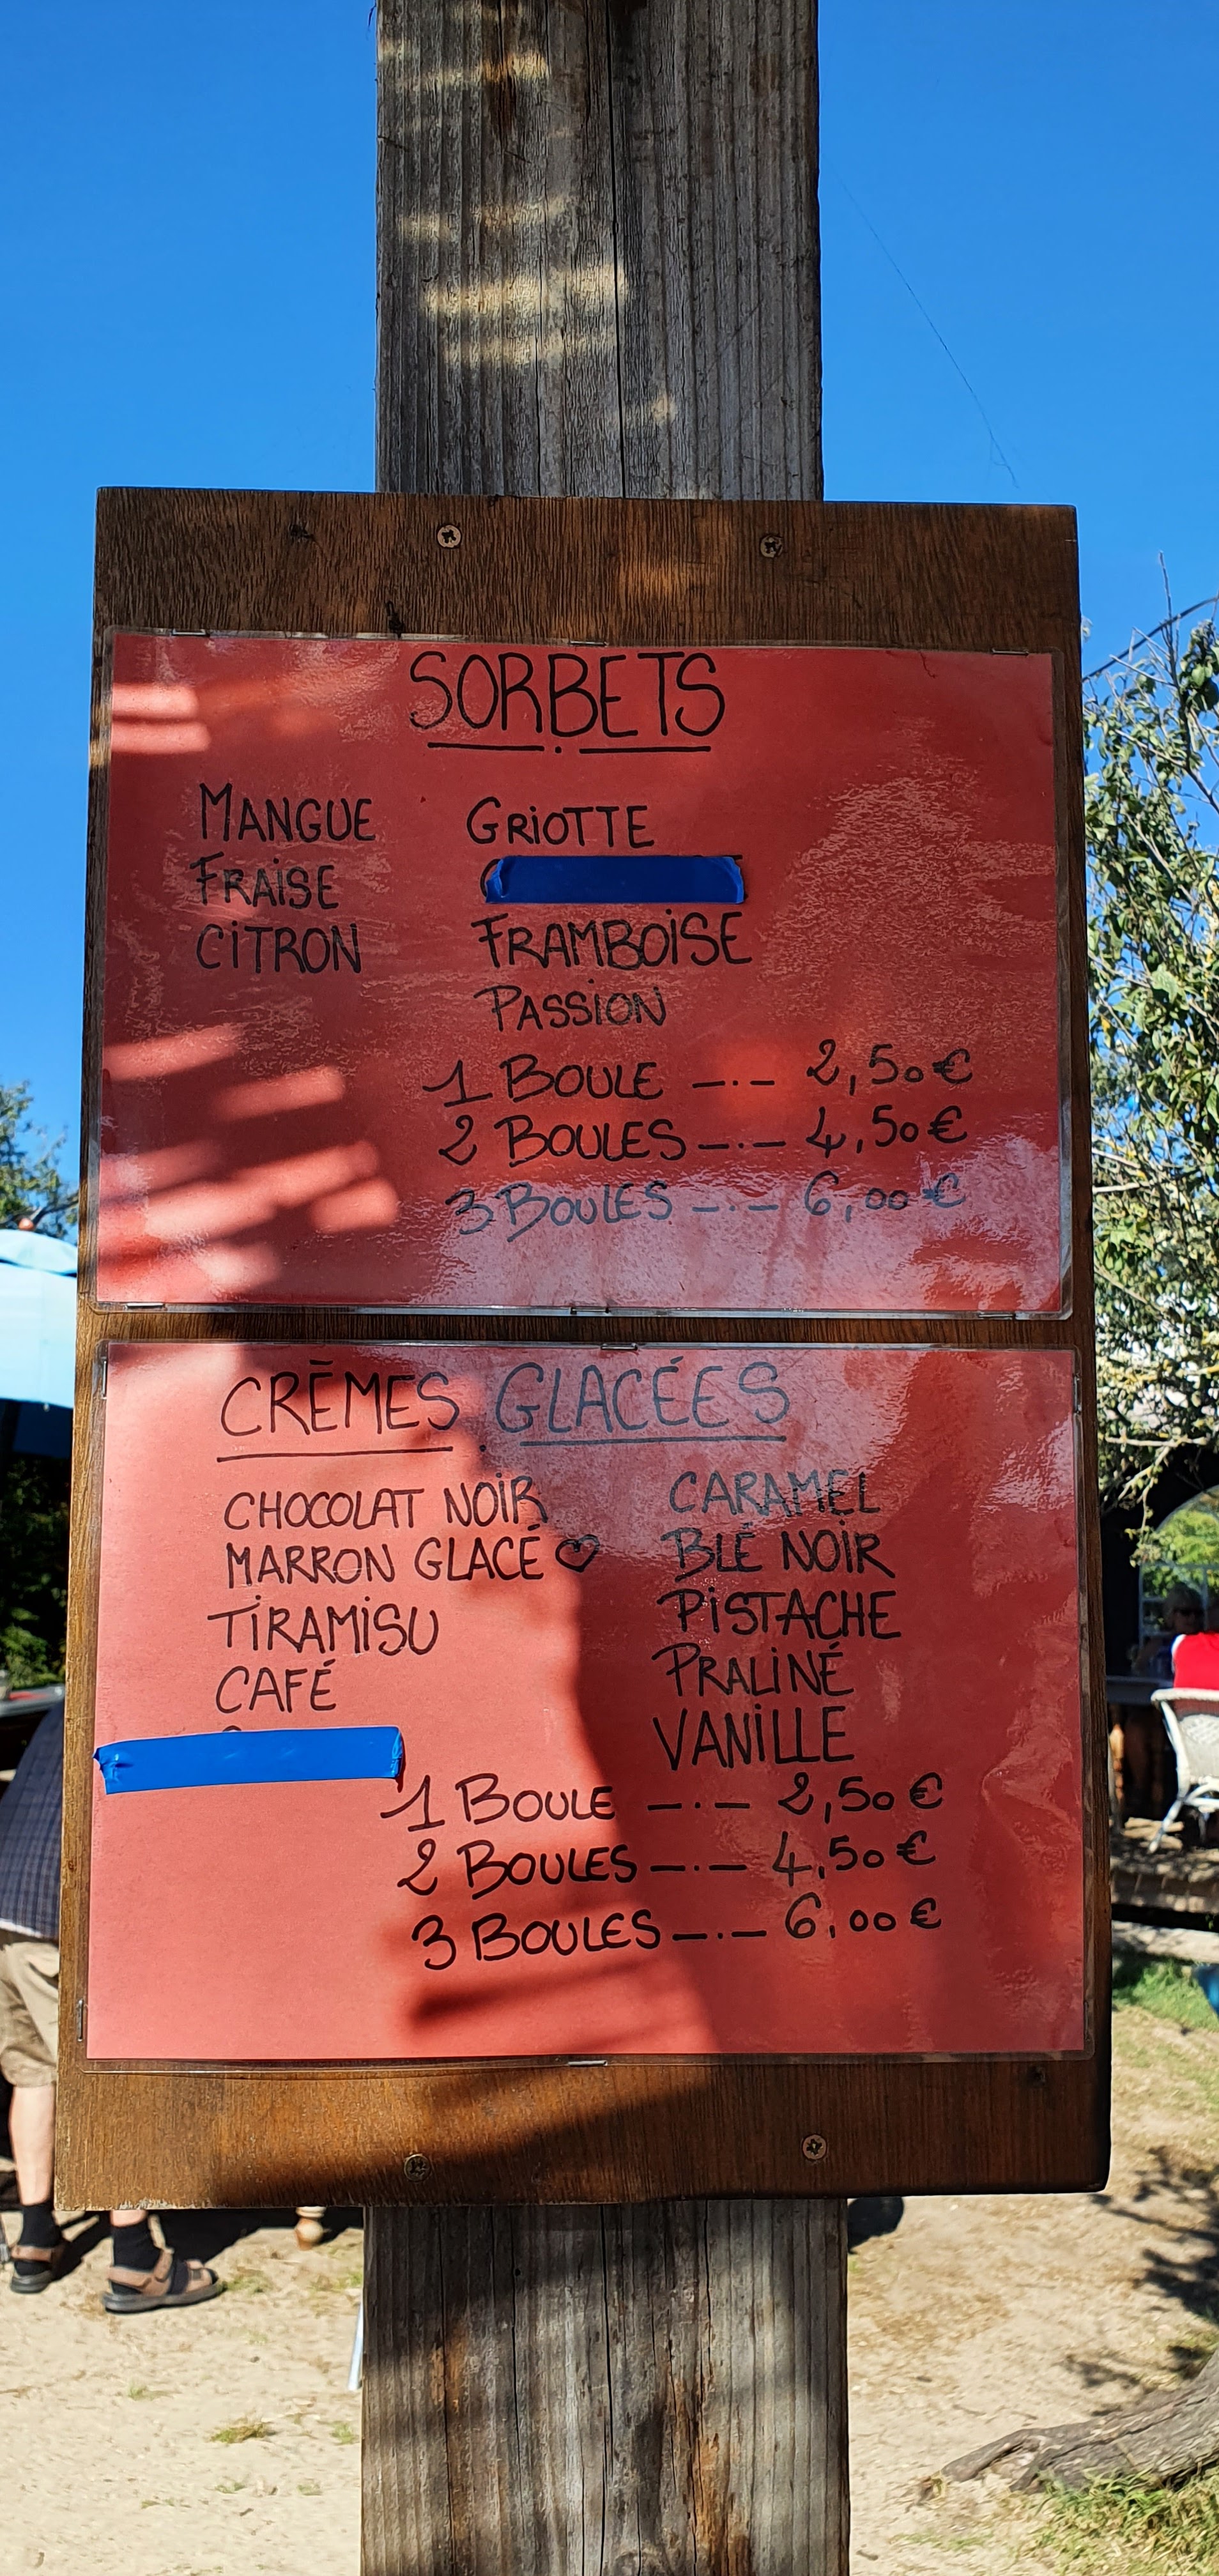 SORBETS
MANGUE
FRAISE
CITRON
GRIOTTE
FRAMBOISE
PASSION
1 BOULE _._ 2,50€
2 BOULES _._ 4,50€
3 BOULES _._ 6,00€
CRÈMES GLACÉES
CHOCOLAT NOIR
MARRON GLACÉ ♡
TIRAMISU
CAFÉ
CARAMEL
BLÉ NOIR
PISTACHE
PRALINÉ
VANILLE
1 BOULE _._ 2,50€
2 BOULES _._ 4,50€
3 BOULES _._ 6,00€